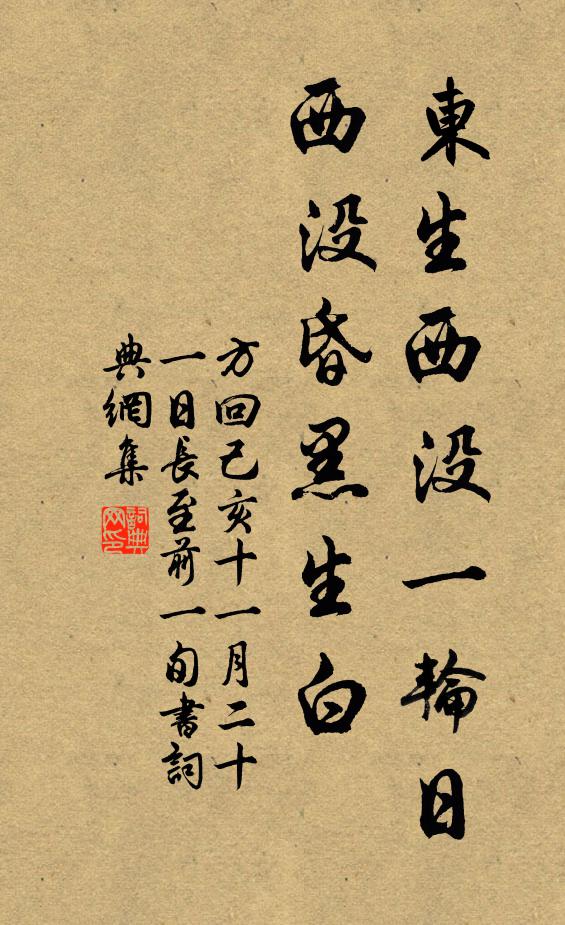 東生西没一輪日
西没昏黑生白
方回己亥十一月二十
一日長至前一旬書詞
典網集
詞典
网印